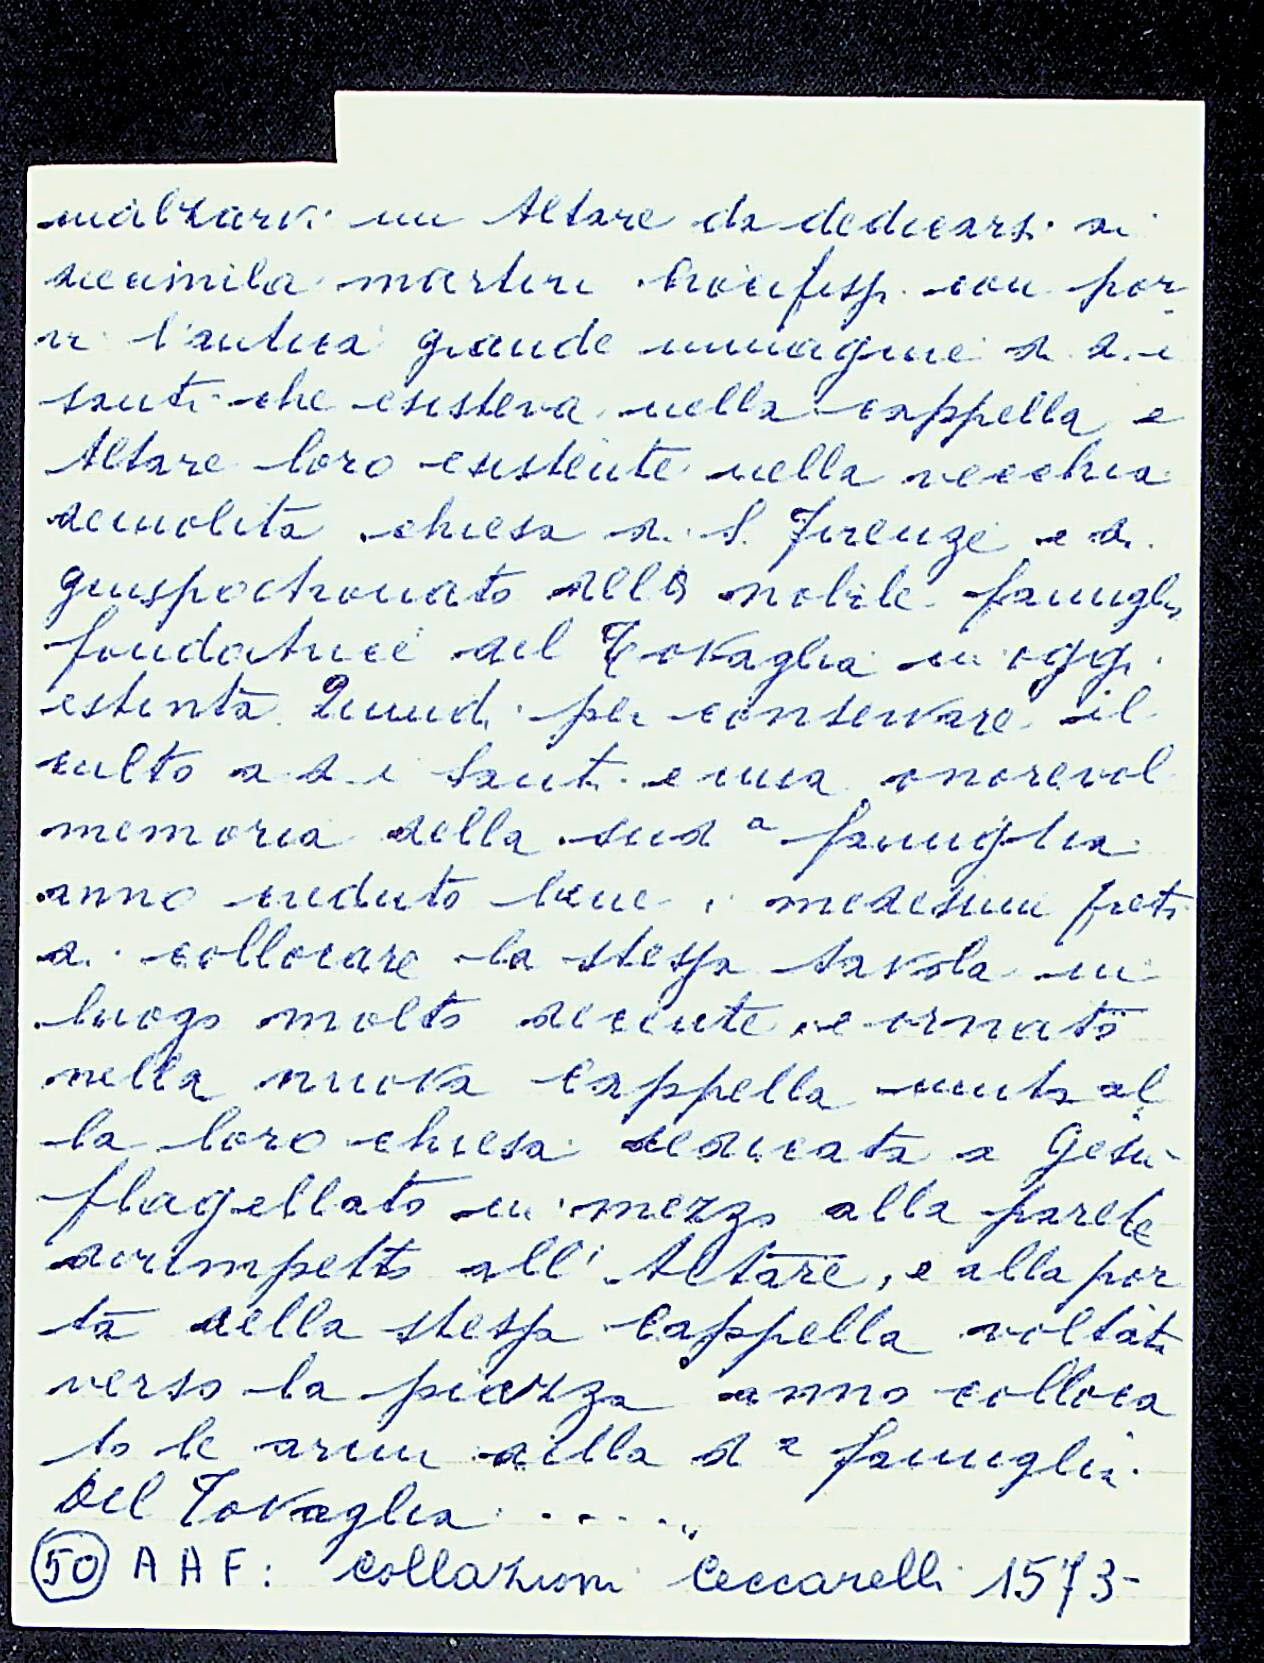 inalzarvi un Altare da dedicarsi ai
diecimila martiri Crocifissi con por
vi l'antica grande immagine di d.i
santi che esisteva nella cappella e
Altare loro esistente nella vecchia
demolita chiesa di S. Firenze e di
giuspatronato della nobile famiglia
fondatrice del Tovaglia in oggi
estinta. Quindi per conservare il
culto a d.i Santi e una onorevol
memoria della sud.a famiglia
anno creduto bene i medesimi frati
di collocare la stessa tavola in
luogo molto decente e ornato
nella nuova Cappella unita al
la loro chiesa dedicata a Gesù
flagellato in mezzo alla parete
dirimpetto all'Altare, e alla por
ta della stessa Cappella voltata
verso la piazza anno colloca
to le armi della d.a famiglia
Del Tovaglia . . . . . "
(50) A A F: Collazioni Ceccarelli 1573-